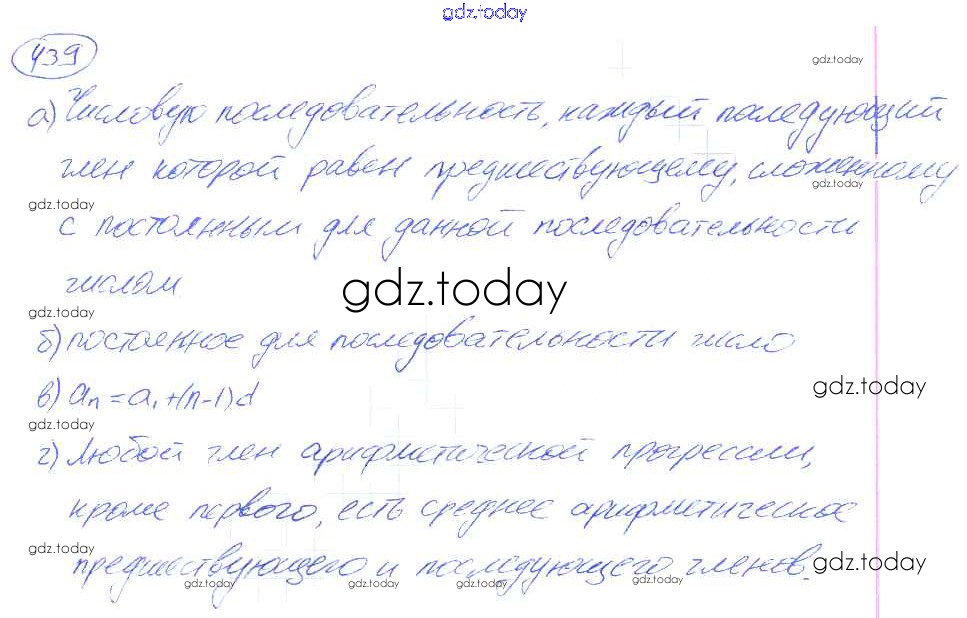 gdz.today
439
gdz.today
а) Числовую последовательность, каждый последующий
член которой равен предшествующему, сложенному
gdz.today
gdz.today
с постоянным для данной последовательности
числом
gdz.today
gdz.today
б) постоянное для последовательности число
gdz.today
в) aₙ = a₁ + (n-1)d
gdz.today
г) Любой член арифметической прогрессии,
кроме первого, есть среднее арифметическое
gdz.today
предшествующего и последующего членов.
gdz.today
gdz.today
gdz.today
gdz.today
gdz.today